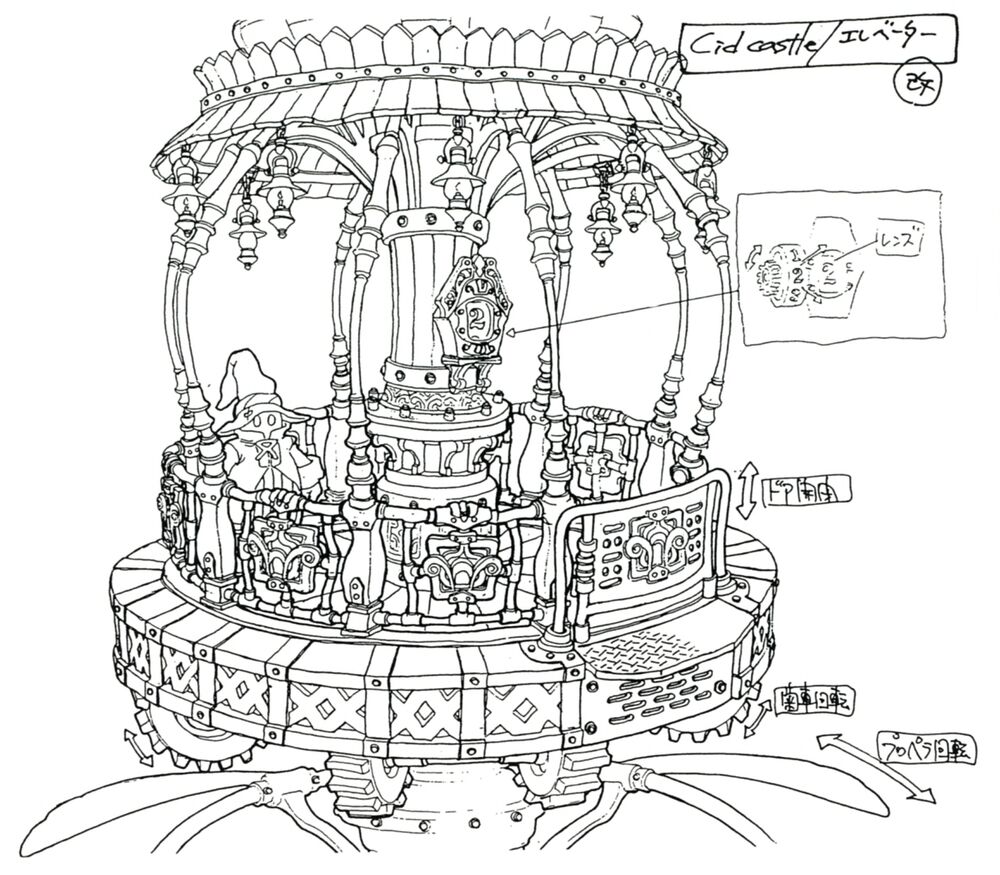 Cid castle/エレベーター
改
レンズ
2
2
2
ドア開閉
歯車回転
プロペラ回転